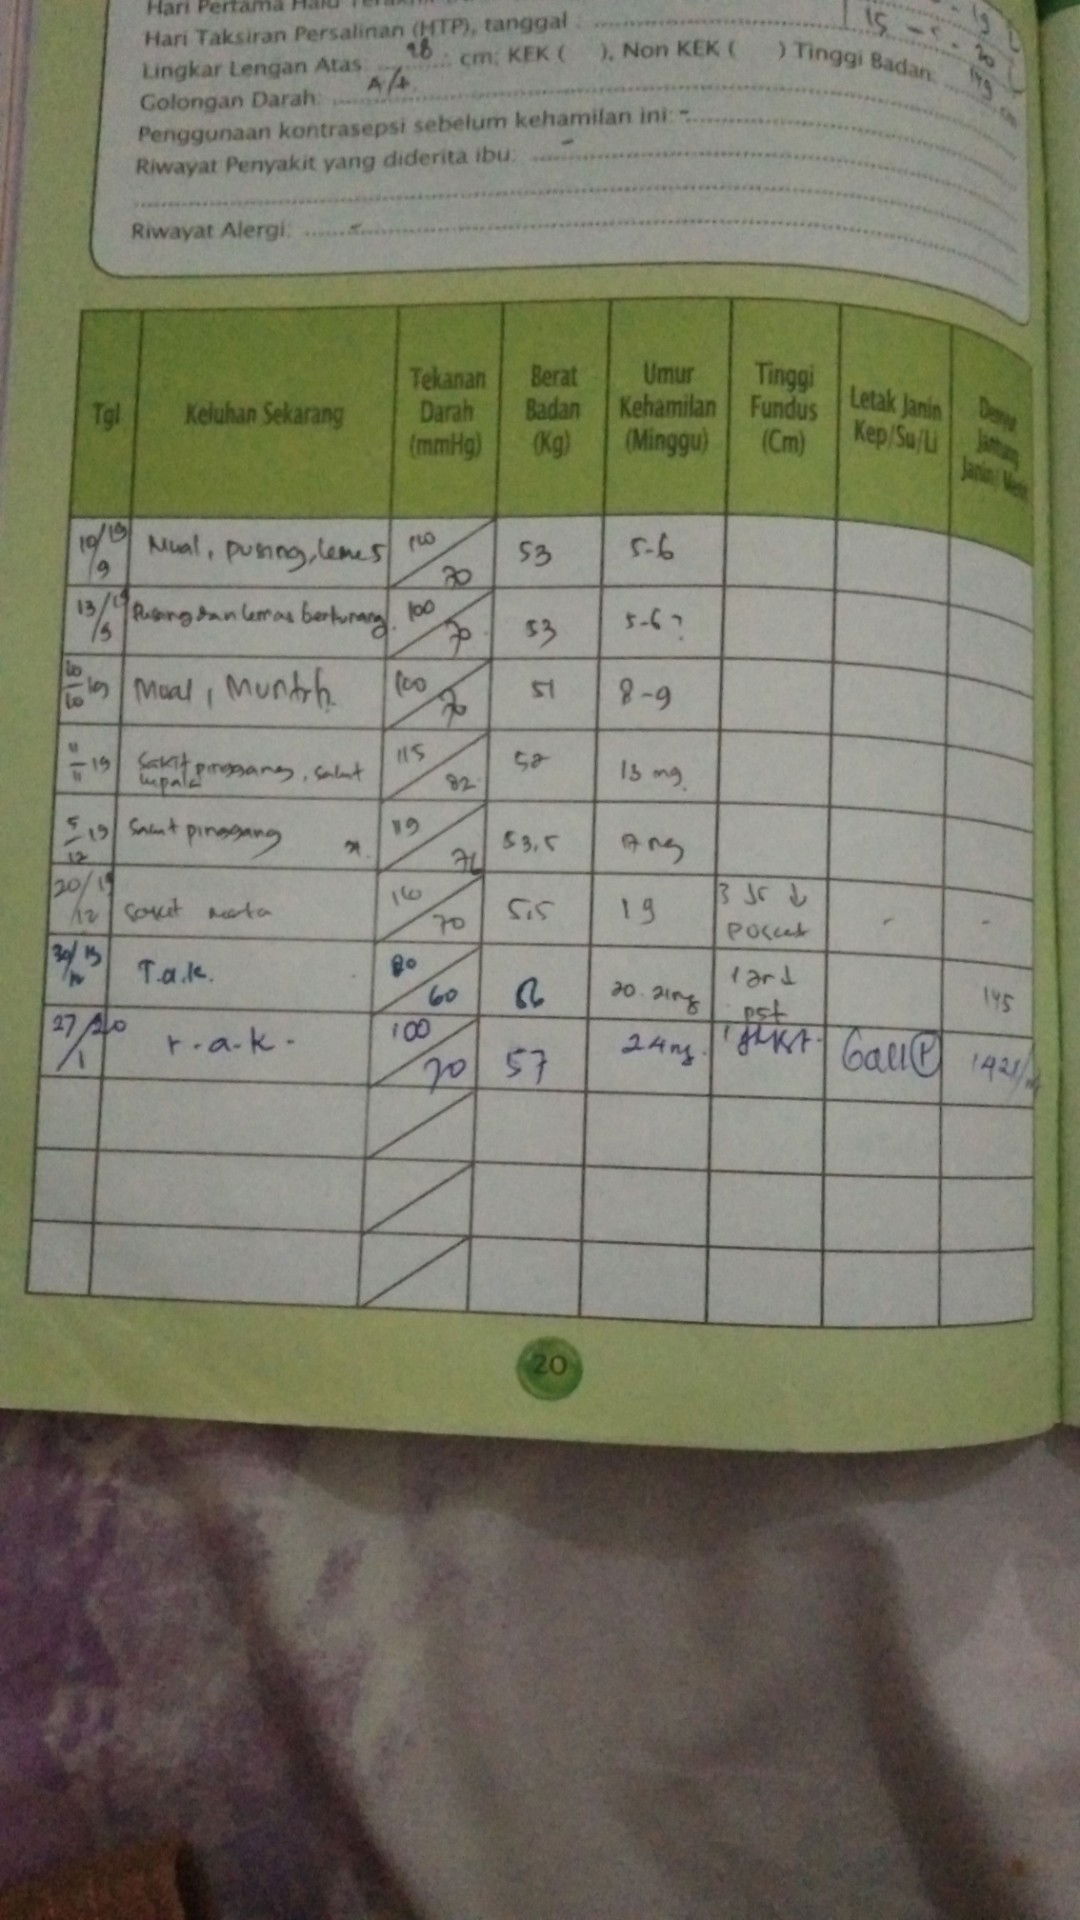 Hari Pertama Haid
Hari Taksiran Persalinan (HTP), tanggal : 15 - 5 - 20
Lingkar Lengan Atas: 28 cm; KEK ( ), Non KEK ( ) Tinggi Badan: 149 cm
Golongan Darah:
Penggunaan kontrasepsi sebelum kehamilan ini: -
Riwayat Penyakit yang diderita ibu: -
Riwayat Alergi: -
Tgl Keluhan Sekarang Tekanan Darah (mmHg) Berat Badan (Kg) Umur Kehamilan (Minggu) Tinggi Fundus (Cm) Letak Janin Kep/Su/Li Jantung Janin/
10/9 19 Mual, pusing, lemes 110/70 53 5-6
13/9 19 Pusing dan lemas berkurang. 100/70 53 5-6?
10/10 19 Mual, Muntah. 100/70 51 8-9
11/11 19 Sakit pinggang, sakit kepala 115/82 52 13 mg.
5/12 19 Sakit pinggang 119/76 53,5 17 mg
20/12 19 sakit mata 110/70 55 19 3 Jr ↓ pusat - -
30/12 19 T.a.k. 80/60 56 20-21mg 1 Jr ↓ pst 145
27/1 20 t.a.k. 100/70 57 24mg.
20